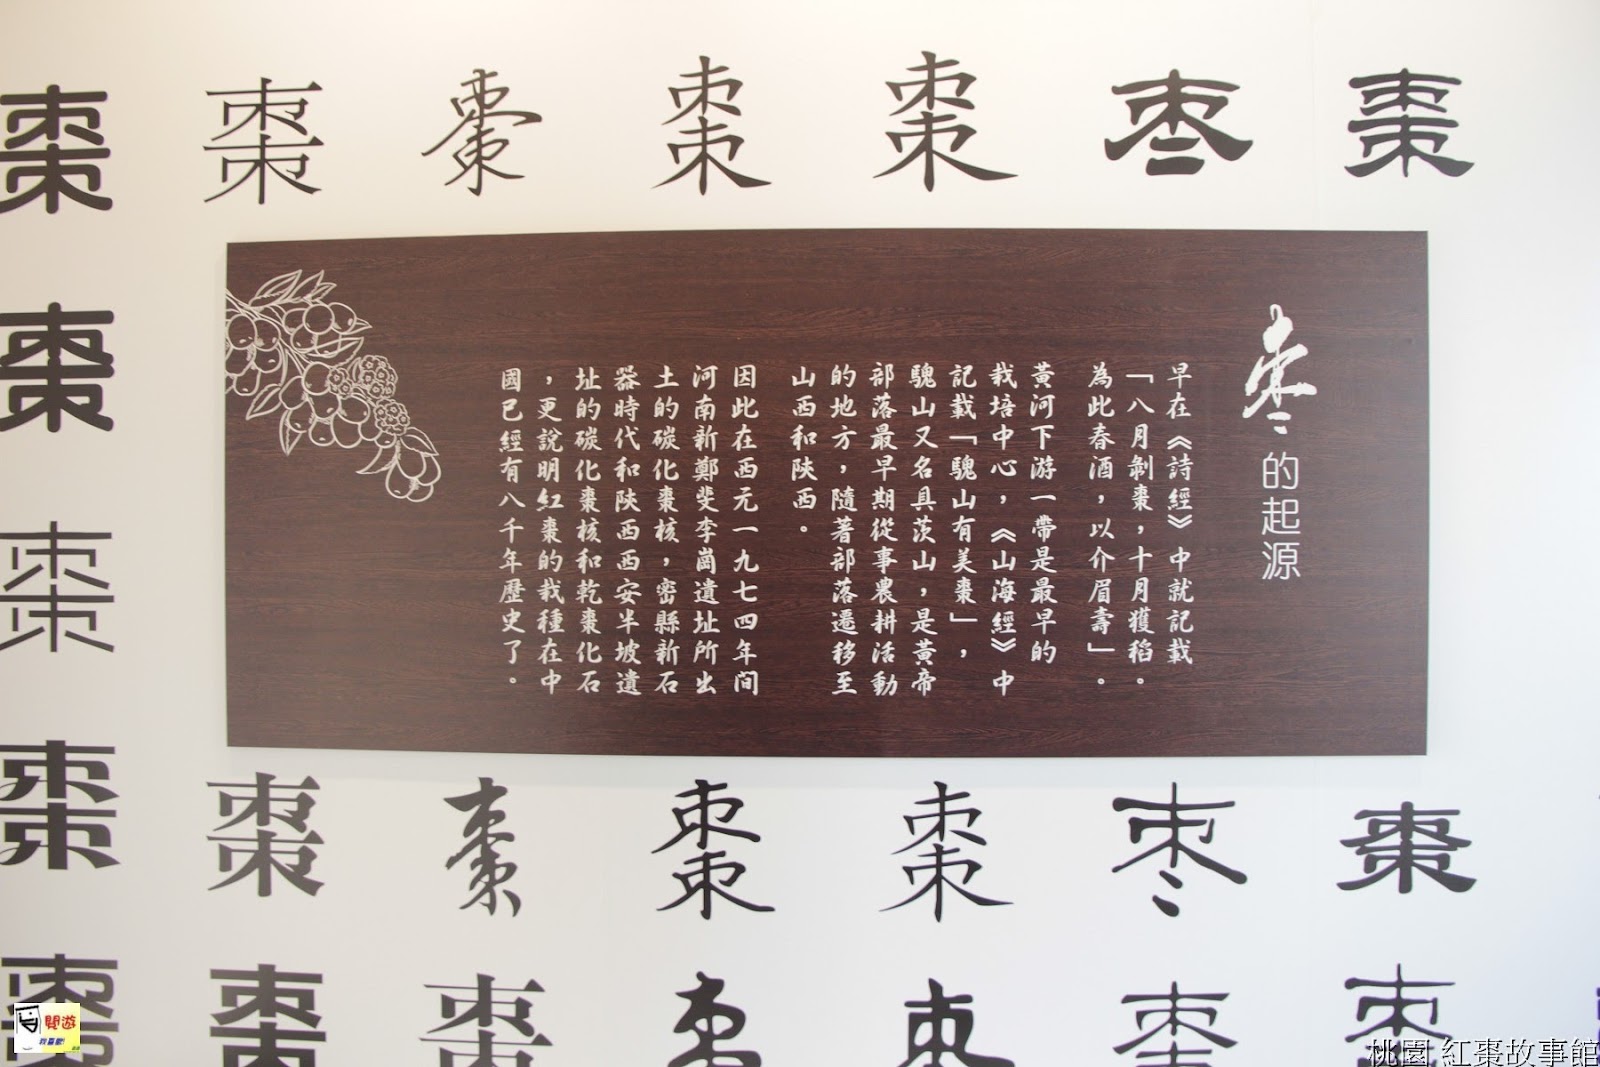 棗 棗 棗 棗 棗 枣 棗
枣的起源
早在《詩經》中就記載
「八月剝棗，十月獲稻。
為此春酒，以介眉壽」。
黃河下游一帶是最早的
栽培中心，《山海經》中
記載「騩山有美棗」，
騩山又名具茨山，是黃帝
部落最早期從事農耕活動
的地方，隨著部落遷移至
山西和陝西。
因此在西元一九七四年間
河南新鄭斐李崗遺址所出
土的碳化棗核，密縣新石
器時代和陝西西安半坡遺
址的碳化棗核和乾棗化石
，更說明紅棗的栽種在中
國已經有八千年歷史了。
棗
棗
棗 棗 棗 棗 棗 枣 棗
棗 棗 棗
閒遊
我喜歡!
桃園 紅棗故事館